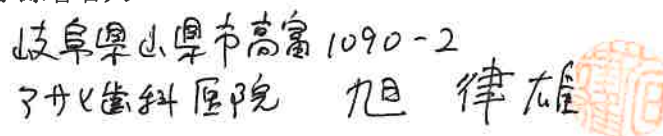 岐阜県山県市高富1090-2
アサヒ歯科医院 旭 律雄